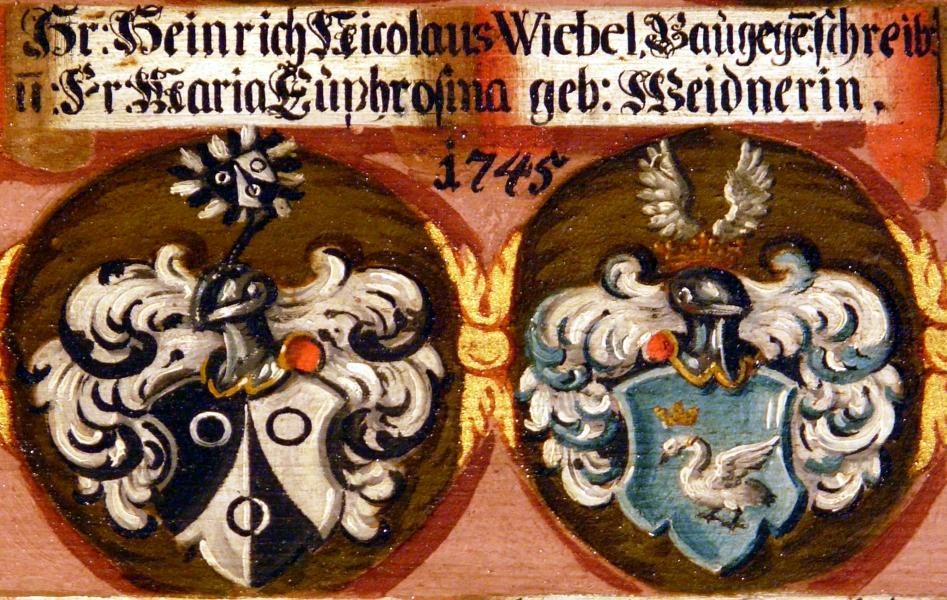 Hr: Heinrich Nicolaus Wiebel, Baugege͞schreib:
u͞: Fr: Maria Euphrosina geb: Weidnerin.
1745